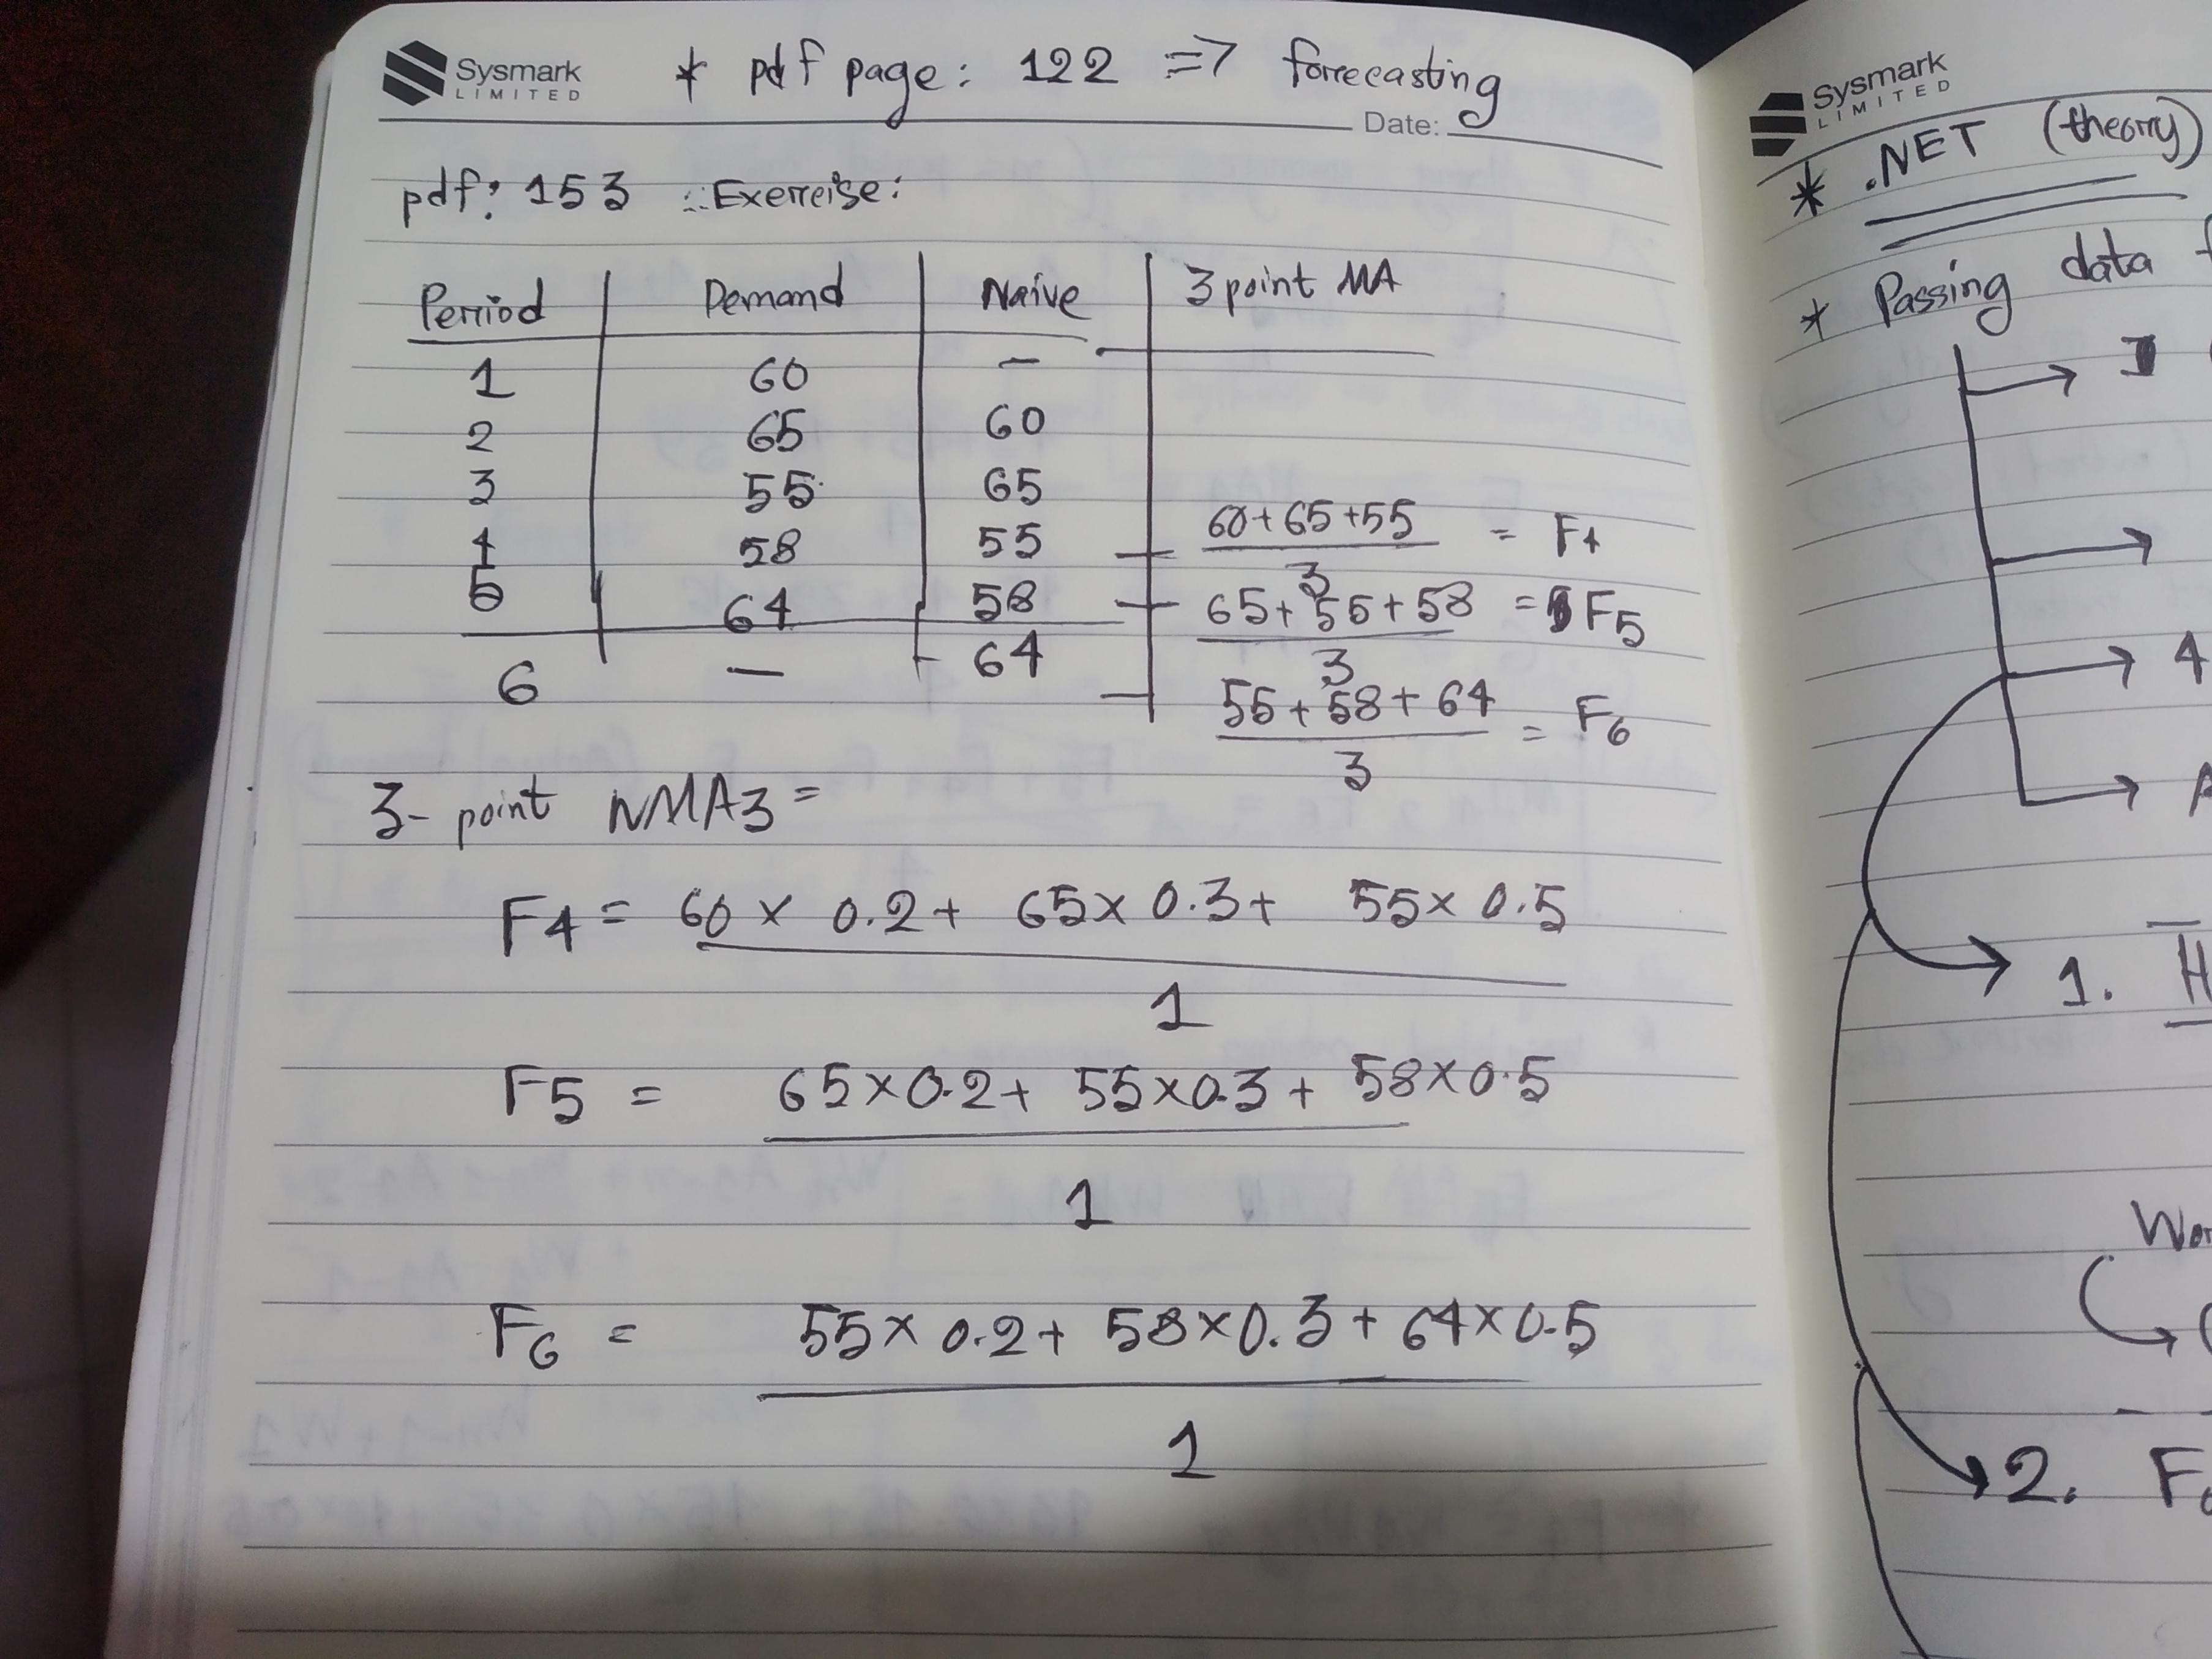 Sysmark
LIMITED
* pdf page: 122 => forrecasting
Date:
pdf: 153 :. Exerreise:
Perriod | Demand | Naive | 3 point MA
1 | 60 | —
2 | 65 | 60
3 | 55 | 65
4 | 58 | 55 | 60+65+55 / 3 = F4
5 | 64 | 58 | 65+55+58 / 3 = F5
6 | — | 64 | 55+58+64 / 3 = F6
3- point WMA3 =
F4 = 60 x 0.2 + 65 x 0.3 + 55 x 0.5
1
F5 = 65x0.2+ 55x0.3 + 58x0.5
1
F6 = 55x 0.2+ 58x0.3 + 64x0.5
1
Sysmark
LIMITED
* .NET (theorry)
* Passing data
4
1. H
2.